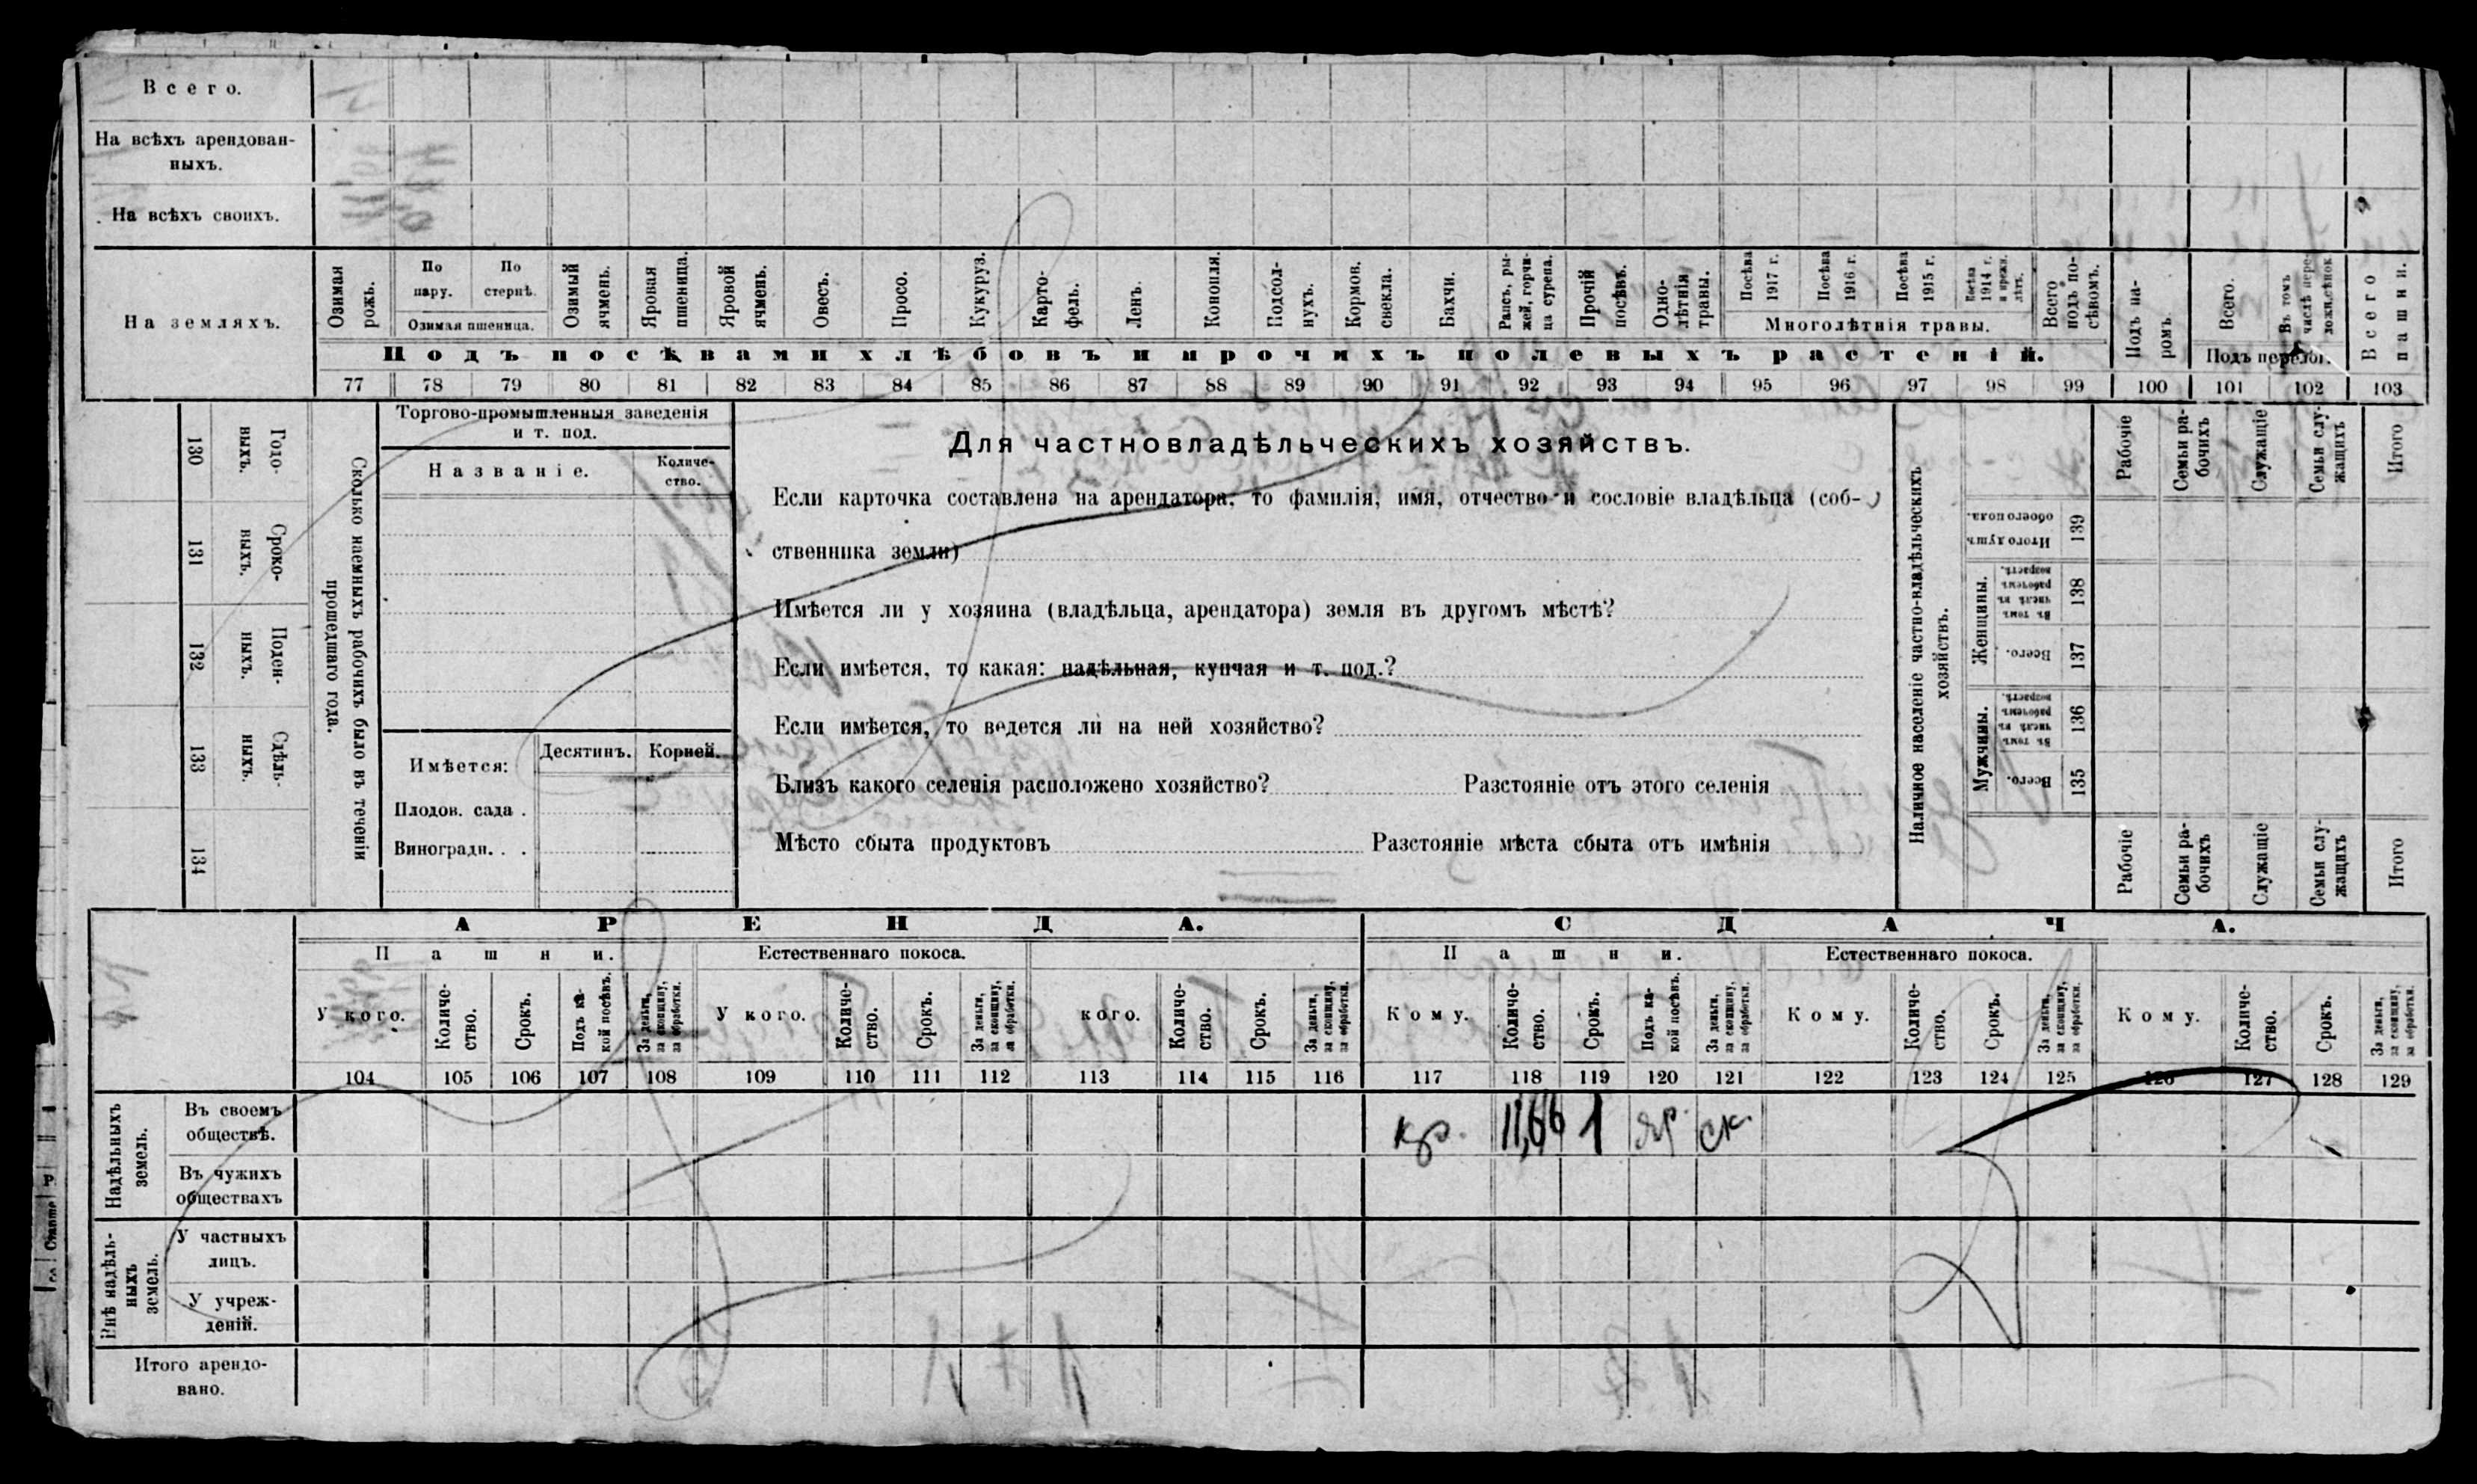 Всего.
На всѣхъ арендован-
ныхъ.
На всѣхъ своихъ.
На земляхъ.
Озимая
рожь.
По
пару.
По
стернѣ.
Озимая пшеница.
Озимый
ячмень.
Яровая
пшеница.
Яровой
ячмень.
Овесъ.
Просо.
Кукуруз.
Карто-
фель.
Ленъ.
Конопля.
Подсол-
нухъ.
Кормов.
свекла.
Бахчи.
Рапсъ, ры-
жей, горчи-
ца сурепа.
Прочій
посѣвъ.
Одно-
лѣтнія
травы.
Посѣва
1917 г.
Посѣва
1916 г.
Посѣва
1915 г.
Посѣва
1914 г.
и прежн.
лѣтъ.
Многолѣтнія травы.
Всего
подъ по-
сѣвомъ.
Подъ па-
ромъ.
Всего.
Въ томъ
числѣ пере-
Подъ перелог.
Всего
пашни.
Подъ посѣвами хлѣбовъ и прочихъ полевыхъ растеній.
77 78 79 80 81 82 83 84 85 86 87 88 89 90 91 92 93 94 95 96 97 98 99 100 101 102 103
130
Годо-
выхъ.
131
Сроко-
ныхъ.
132
Поден-
ныхъ.
133
Сдѣль-
ныхъ.
134
Сколько наемныхъ рабочихъ было въ теченіи
прошедшаго года.
Торгово-промышленныя заведенія
и т. под.
Названіе.
Количе-
ство.
Имѣется:
Десятинъ.
Корней.
Плодов. сада .
Виноградн. . .
Для частновладѣльческихъ хозяйствъ.
Если карточка составлена на арендатора, то фамилія, имя, отчество и сословіе владѣльца (соб-
ственника земли)
Имѣется ли у хозяина (владѣльца, арендатора) земля въ другомъ мѣстѣ?
Если имѣется, то какая: надѣльная, купчая и т. под.?
Если имѣется, то ведется ли на ней хозяйство?
Близъ какого селенія расположено хозяйство? Разстояніе отъ этого селенія
Мѣсто сбыта продуктовъ Разстояніе мѣста сбыта отъ имѣнія
Наличное населеніе частно-владѣльческихъ
хозяйствъ.
Итого душъ
обоего пола.
139
Женщины.
Въ томъ
числѣ въ
рабочемъ
возрастѣ.
138
Всего.
137
Мужчины.
Въ томъ
числѣ въ
рабочемъ
возрастѣ.
136
Всего.
135
Рабочіе
Семьи ра-
бочихъ
Служащіе
Семьи слу-
жащихъ
Итого
Рабочіе
Семьи ра-
бочихъ
Служащіе
Семьи слу-
жащихъ
Итого
АРЕНДА.
СДАЧА.
Пашни.
Естественнаго покоса.
Пашни.
Естественнаго покоса.
У кого.
Количе-
ство.
Срокъ.
Подъ ка-
кой посѣвъ.
За деньги,
за скопщину,
за обработки.
У кого.
Количе-
ство.
Срокъ.
За деньги,
за скопщину,
за обработки.
кого.
Количе-
ство.
Срокъ.
За деньги,
за скопщину,
за обработки.
Кому.
Количе-
ство.
Срокъ.
Подъ ка-
кой посѣвъ.
За деньги,
за скопщину,
за обработки.
Кому.
Количе-
ство.
Срокъ.
За деньги,
за скопщину,
за обработки.
Кому.
Количе-
ство.
Срокъ.
За деньги,
за скопщину,
за обработки.
104 105 106 107 108 109 110 111 112 113 114 115 116 117 118 119 120 121 122 123 124 125 126 127 128 129
Надѣльныхъ
земель.
Въ своемъ
обществѣ.
кр. 11,66 1 яр. ск.
Въ чужихъ
обществахъ
Внѣ надѣль-
ныхъ
земель.
У частныхъ
лицъ.
У учреж-
деній.
Итого арендо-
вано.